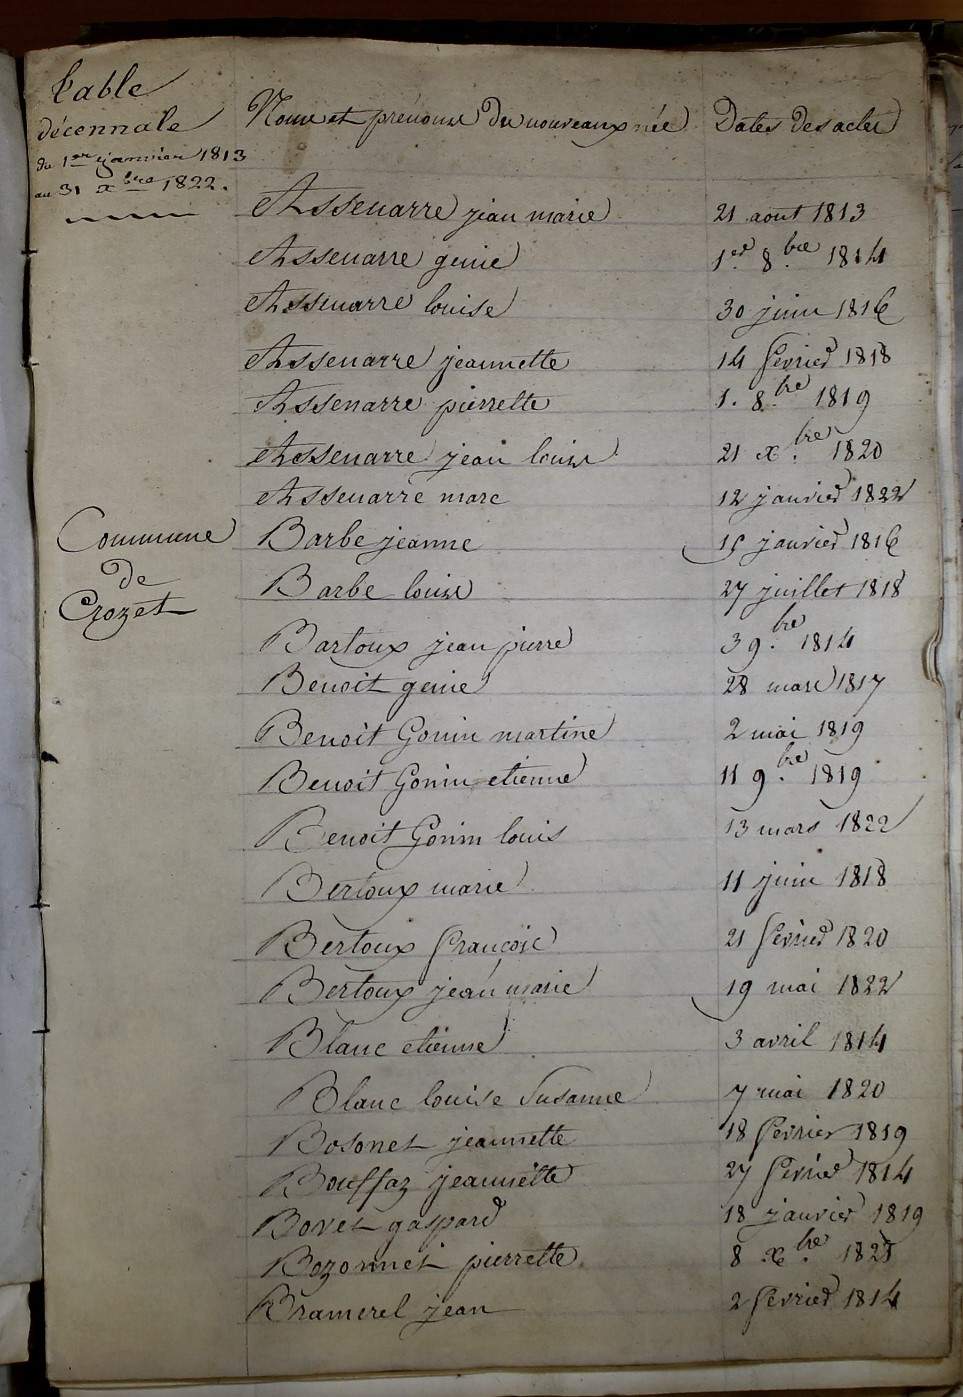 Table
décennale
du 1er janvier 1813
au 31 xbre 1822.
Commune
de
Crozet
Noms et prénoms du nouveaux née Dates des actes
Assenarre jean marie 21 aout 1813
Assenarre genie 1er 8bre 1814
Assenarre louise 30 juin 1816
Assenarre jeannette 14 fevrier 1818
Assenarre pierrette 1. 8bre 1819
Assenarre jean louise 21 xbre 1820
Assenarre marc 12 janvier 1822
Barbe jeanne 15 janvier 1816
Barbe louise 27 juillet 1818
Bartoux jean pierre 3 9bre 1814
Benoit genie 28 mars 1817
Benoit Gonin martine 2 mai 1819
Benoit Gonin etienne 11 9bre 1819
Benoit Gonin louis 13 mars 1822
Bertoux marie 11 juin 1818
Bertoux françoise 21 fevrier 1820
Bertoux jean marie 19 mai 1822
Blanc etienne 3 avril 1814
Blanc louise Susanne 7 mai 1820
Bosonet jeannette 18 fevrier 1819
Bouffaz jeannette 27 fevrier 1814
Bovet gaspard 18 janvier 1819
Bozonnet pierrette 8 xbre
Bramerel jean 2 fevrier 1814